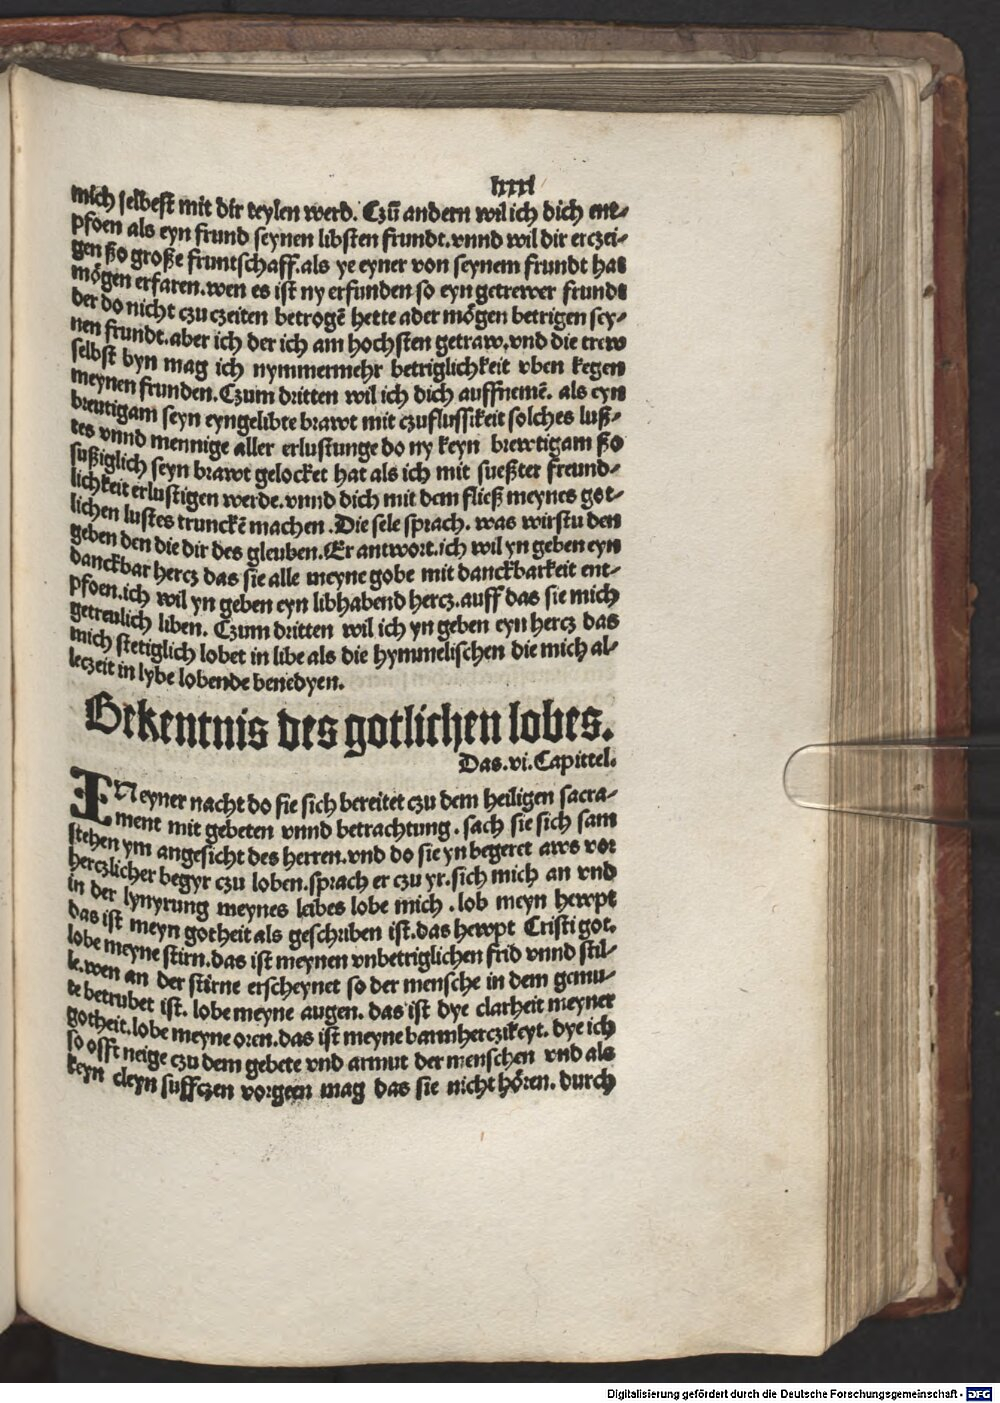 liiii
mich selbest mit dir teylen werd. Czů andern wil ich dich ent⸗
pfoen als eyn frund seynen libsten frundt. vnnd wil dir erczei⸗
gen ßo große fruntschaff. als ye eyner von seynem frundt hat
mögen erfaren. wen es ist ny erfunden so eyn getrewer frundt
der do nicht czu czeiten betrogē hette ader mögen betrigen sey⸗
nen frundt. aber ich der ich am hochsten getraw, vnd die trew
selbst byn mag ich nymmermehr betriglichkeit vben kegen
meynen frunden. Czum dritten wil ich dich auffnemē. als eyn
breutigam seyn eyngelibte brawt mit czuflussikeit solches luß⸗
tes vnnd mennige aller erlustunge do ny keyn brewtigam ßo
sußiglich seyn brawt gelocket hat als ich mit sueßter freund⸗
lichkeit erlustigen werde. vnnd dich mit dem fließ meynes got⸗
lichen lustes trunckē machen. Die sele sprach. was wirstu den
geben den die dir des gleuben. Er antwort. ich wil yn geben eyn
danckbar hercz das sie alle meyne gobe mit danckbarkeit ent⸗
pfoen. ich wil yn geben eyn libhabend hercz. auff das sie mich
getreulich liben. Czum dritten wil ich yn geben eyn hercz das
mich stetiglich lobet in libe als die hymmelischen die mich al⸗
leczeit in lybe lobende benedyen.
Bekentnis des gotlichen lobes.
Das. vi. Capittel.
IN eyner nacht do sie sich bereitet czu dem heiligen sacra⸗
ment mit gebeten vnnd betrachtung. sach sie sich sam
stehen ym angesicht des herren. vnd do sie yn begeret aws vor
herczlicher begyr czu loben. sprach er czu yr. sich mich an vnd
in der lynyrung meynes leibes lobe mich. lob meyn hewpt
das ist meyn gotheit als geschriben ist. das hewpt Cristi got.
lobe meyne stirn. das ist meynen vnbetriglichen frid vnnd stil⸗
le. wen an der stirne erscheynet so der mensche in dem gemu⸗
te betrubet ist. lobe meyne augen. das ist dye clarheit meyner
gotheit. lobe meyne oren. das ist meyne barmherczikeyt. dye ich
so offt neige czu dem gebete vnd armut der menschen vnd als
keyn cleyn suffczen vorgeen mag das sie nicht hören. durch
Digitalisierung gefördert durch die Deutsche Forschungsgemeinschaft - DFG